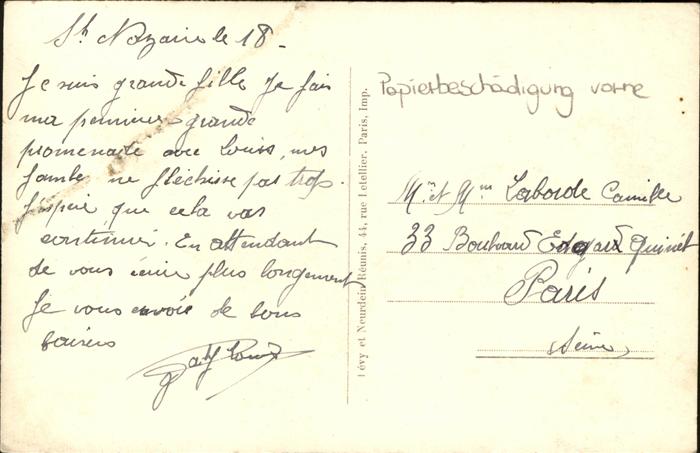 St Nazaire le 18 -
Je suis grande fille je fais
ma premiere grande
promenade avec Louiss, mes
jambe ne fléchisse pas trop.
J'espère que cela vas
continuer. En attendant
de vous écrire plus longement
je vous envoie de bons
baisers
Lévy et Neurdein Réunis, 44, rue Letellier, Paris, Imp.
Papierbeschädigung vorne
Mr et Mme Laborde Camille
33 Boulvard Edgard Quinét
Paris
(Seine)